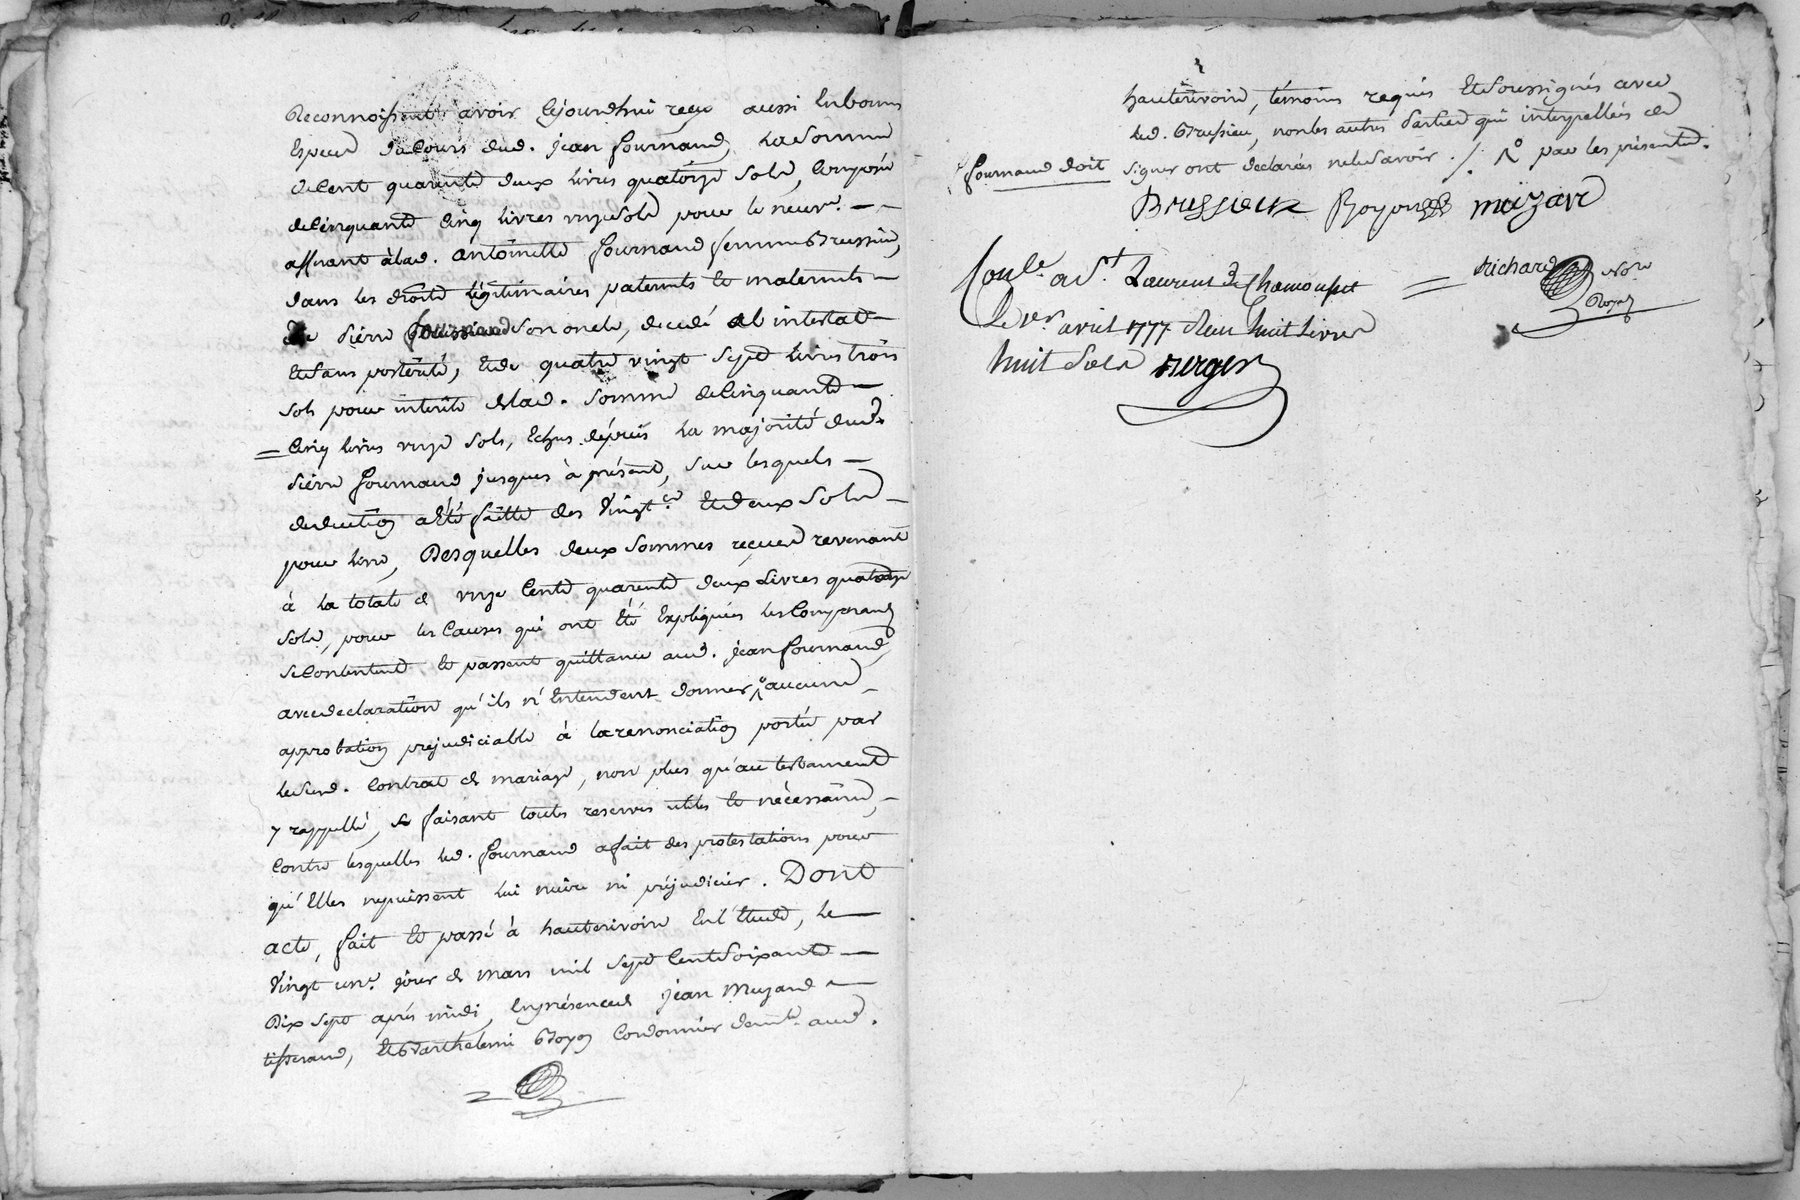 Reconnoissent avoir cejourdhui reçu aussi en bonnes
Especes du Cours dud. jean fournand, la somme
de Cent quarente deux livres quatorze sols, Composée
de Cinquante Cinq livres onze sols pour le neuve. —
afferant à lad. antoinette fournand femme Bressieu,
dans les droits légitimaires paternels et maternels —
de pierre fournand son oncle, decedé ab intestat —
Et sans postérité, Et de quatre vingt sept livres trois
sols pour interêts de lad. somme de Cinquante —
Cinq livres onze sols, Echus depuis la majorité dud.
pierre fournand jusques à présent, sur lesquels —
deduction a été faitte des vingt.es Et deux sols —
pour livre, Desquelles deux sommes reçues revenant
à la totale de onze Cents quarente deux livres quatorze
sols, pour les Causes qui ont été Expliquées les Comparants
se Contentent et passent quittance aud. jean fournand,
avec declaration qu'ils n'Entendent donner aucune —
approbation prejudiciable à la renonciation portée par
le susd. Contrat de mariage, non plus qu'au testament
y rappellé, se faisant toutes reserves utiles et nécessaires, —
Contre lesquelles led. fournand a fait des protestations pour
qu'Elles ne puissent lui nuire ni préjudicier. Dont
acte, fait et passé à hauterivoire En l'Etude, le —
vingt un.e jour de mars mil sept Cent soixante —
Dix sept après midi, En présence de jean Muzard —
tisserand, Et Barthelemi Boyon Cordonnier demt. aud.
hauterivoire, témoins requis Et soussignés avec
led. Bressieu, non les autres parties qui interpellées de
signer ont declarés ne le savoir ./. par les présentes.
fournand doit
Bressieux Boyon muzard
Con.le a St. Laurent de Chamousset
Le 1er avril 1777 Reçu huit livres
huit sols Berger
Richard Nore
Royal